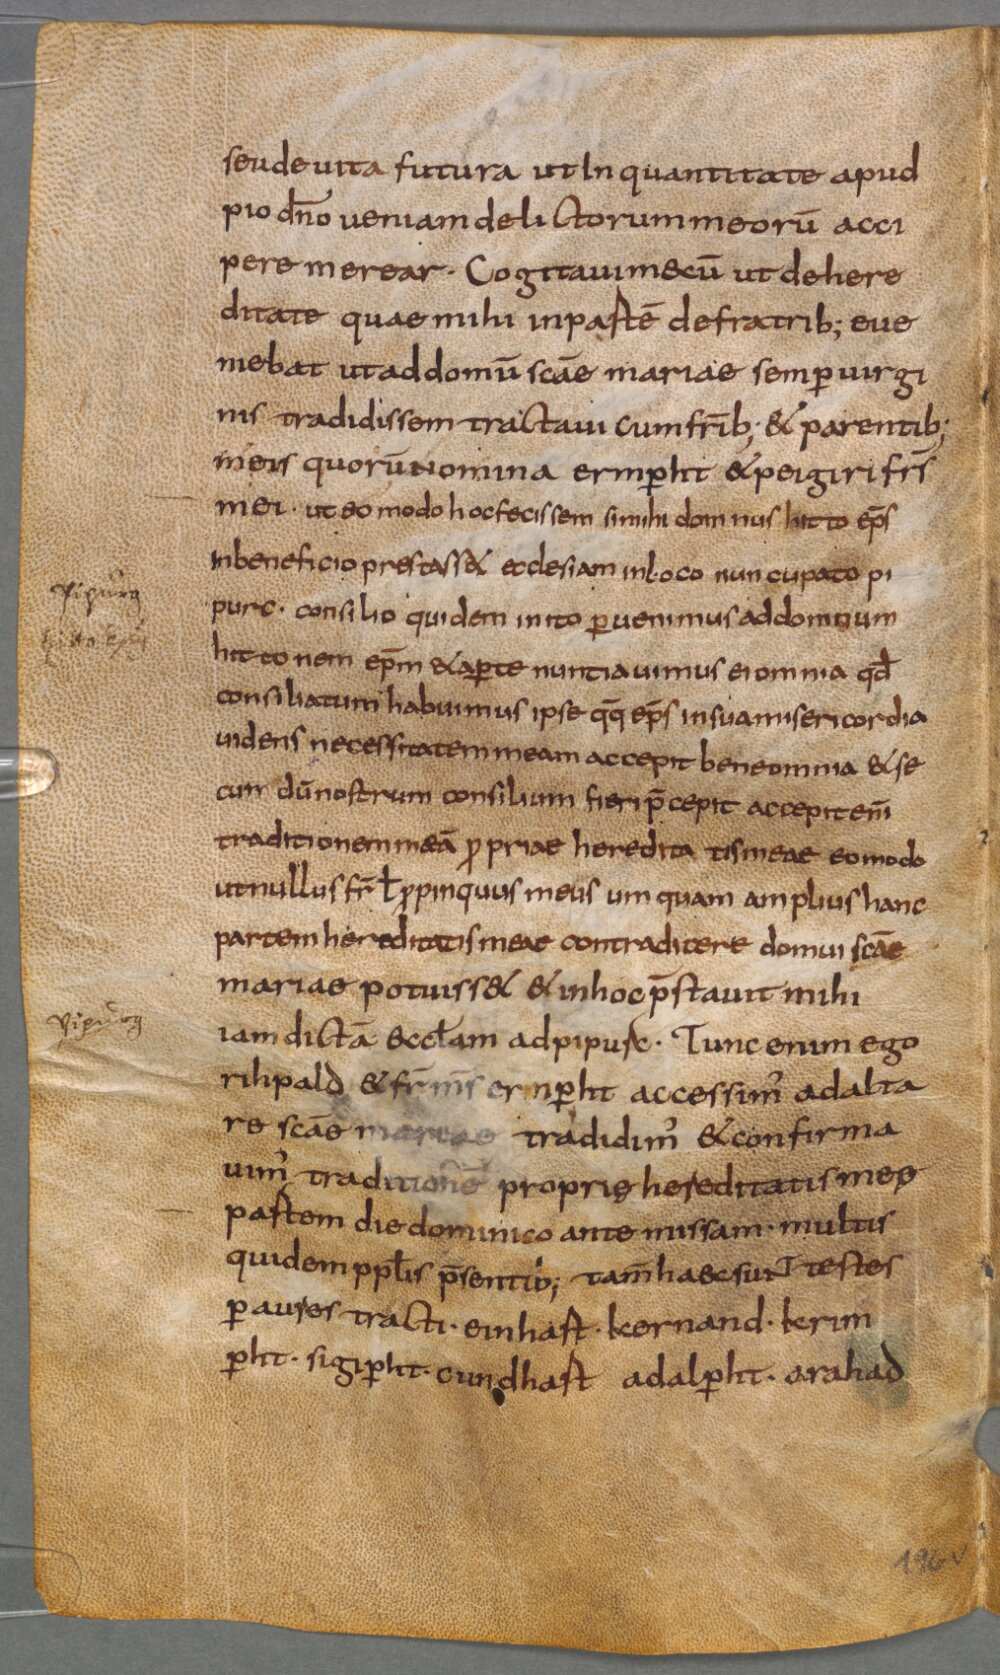 seu de uita futura ut In quantitate apud
pio dn̄o ueniam delictorum meorū acci
pere merear. Cogitaui mecū ut de here
ditate quae mihi in partē de fratrib; eue
niebat ut ad domū scāe mariae semp̱ uirgi
nis tradidissem tractaui cum fr̄ib; & parentib;
meis quorū nomina ermp̱ht & peigiri fr̄s
mei. ut eo modo hoc fecissem si mihi domnus hitto ep̄s
In beneficio prestass& ecclesiam in loco nuncupato pi
Pipurg
purc. consilio quidem inito p̱uenimus ad domnum
hittonem ep̄m & ap̱te nuntiauimus ei omnia qd̄
consiliatum habuimus ipse q̄q ep̄s in sua misericordia
uidens necessitatem meam accepit bene omnia & se
cundū nostrum consilium fieri p̄cepit accepit eni̅
traditionem meā ꝓpriae hereditatis meae eo modo
ut nullus fr̄ ł ꝓpinquus meus umquam amplius hanc
partem hereditatis meae contradicere domui scāe
mariae potuiss& & in hoc p̄stauit mihi
Pipurg
iam dictā eccłam ad pipurc. Tunc enim ego
rihpald & fr̄ m̄s ernp̱ht accessim᾽ ad alta
re scāe mariae tradidim᾽ & confirma
uim᾽ traditionē proprię hereditatis meę
partem die dominico ante missam. multis
quidem ppłis p̄sentib; tam̄ haec sunt testes
p̱ aures tracti. einhart. kernand. kerim
p̱ht. sigip̱ht. cundhart adalp̱ht. arahad
196v